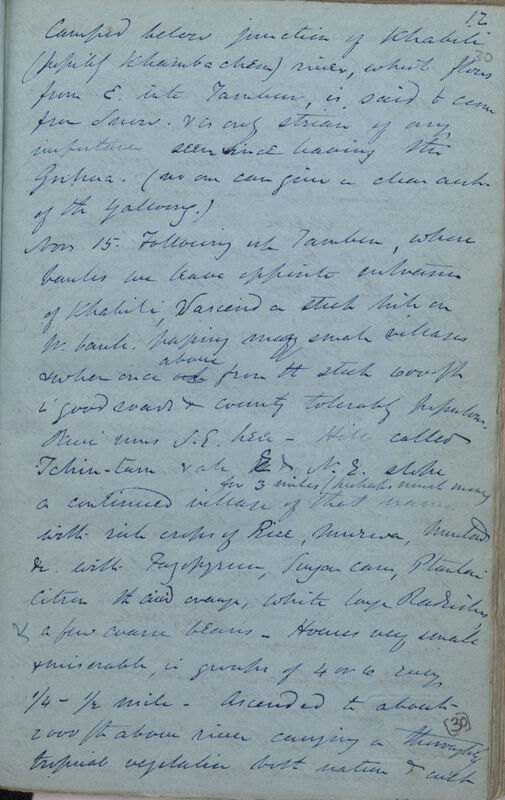 12
30
Camped below junction of Khabili
(Khambachen) river, which flows
from E. into Tambur, is said to come
from Snow. & is only stream of any
importance seen since leaving the
(no one can give a clear acct.
of the Yalloong.)
Novr 15. Following up Tambur, where
banks we leave opposite entrance
of Khabili, & ascend a steep hill on
W. bank. passing many small villages
above
& when once from the steep 600 ft
is good road & country tolerably populous.
River runs S.E. here - Hill called
Tchin-tam & N.E. slope
for 3 miles (perhaps much more)
a continued village of that name
with rich crops of Rice, Murwa, Mustard
&c. with Fagopyrum, Sugar cane, Plantain
citron & orange, white large Radishes
& a few coarse beans - Houses very small
& miserable, in groups of 4 or 6 every
1/4 - 1/2 mile - Ascended to about
2000 ft above river carrying a thoroughly
[30]
tropical vegetation both native & cult